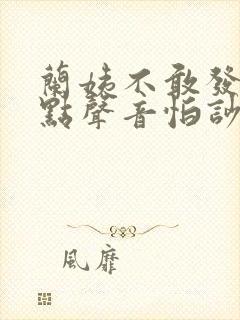 蘭姨不敢發
點聲音怕訬
風靡